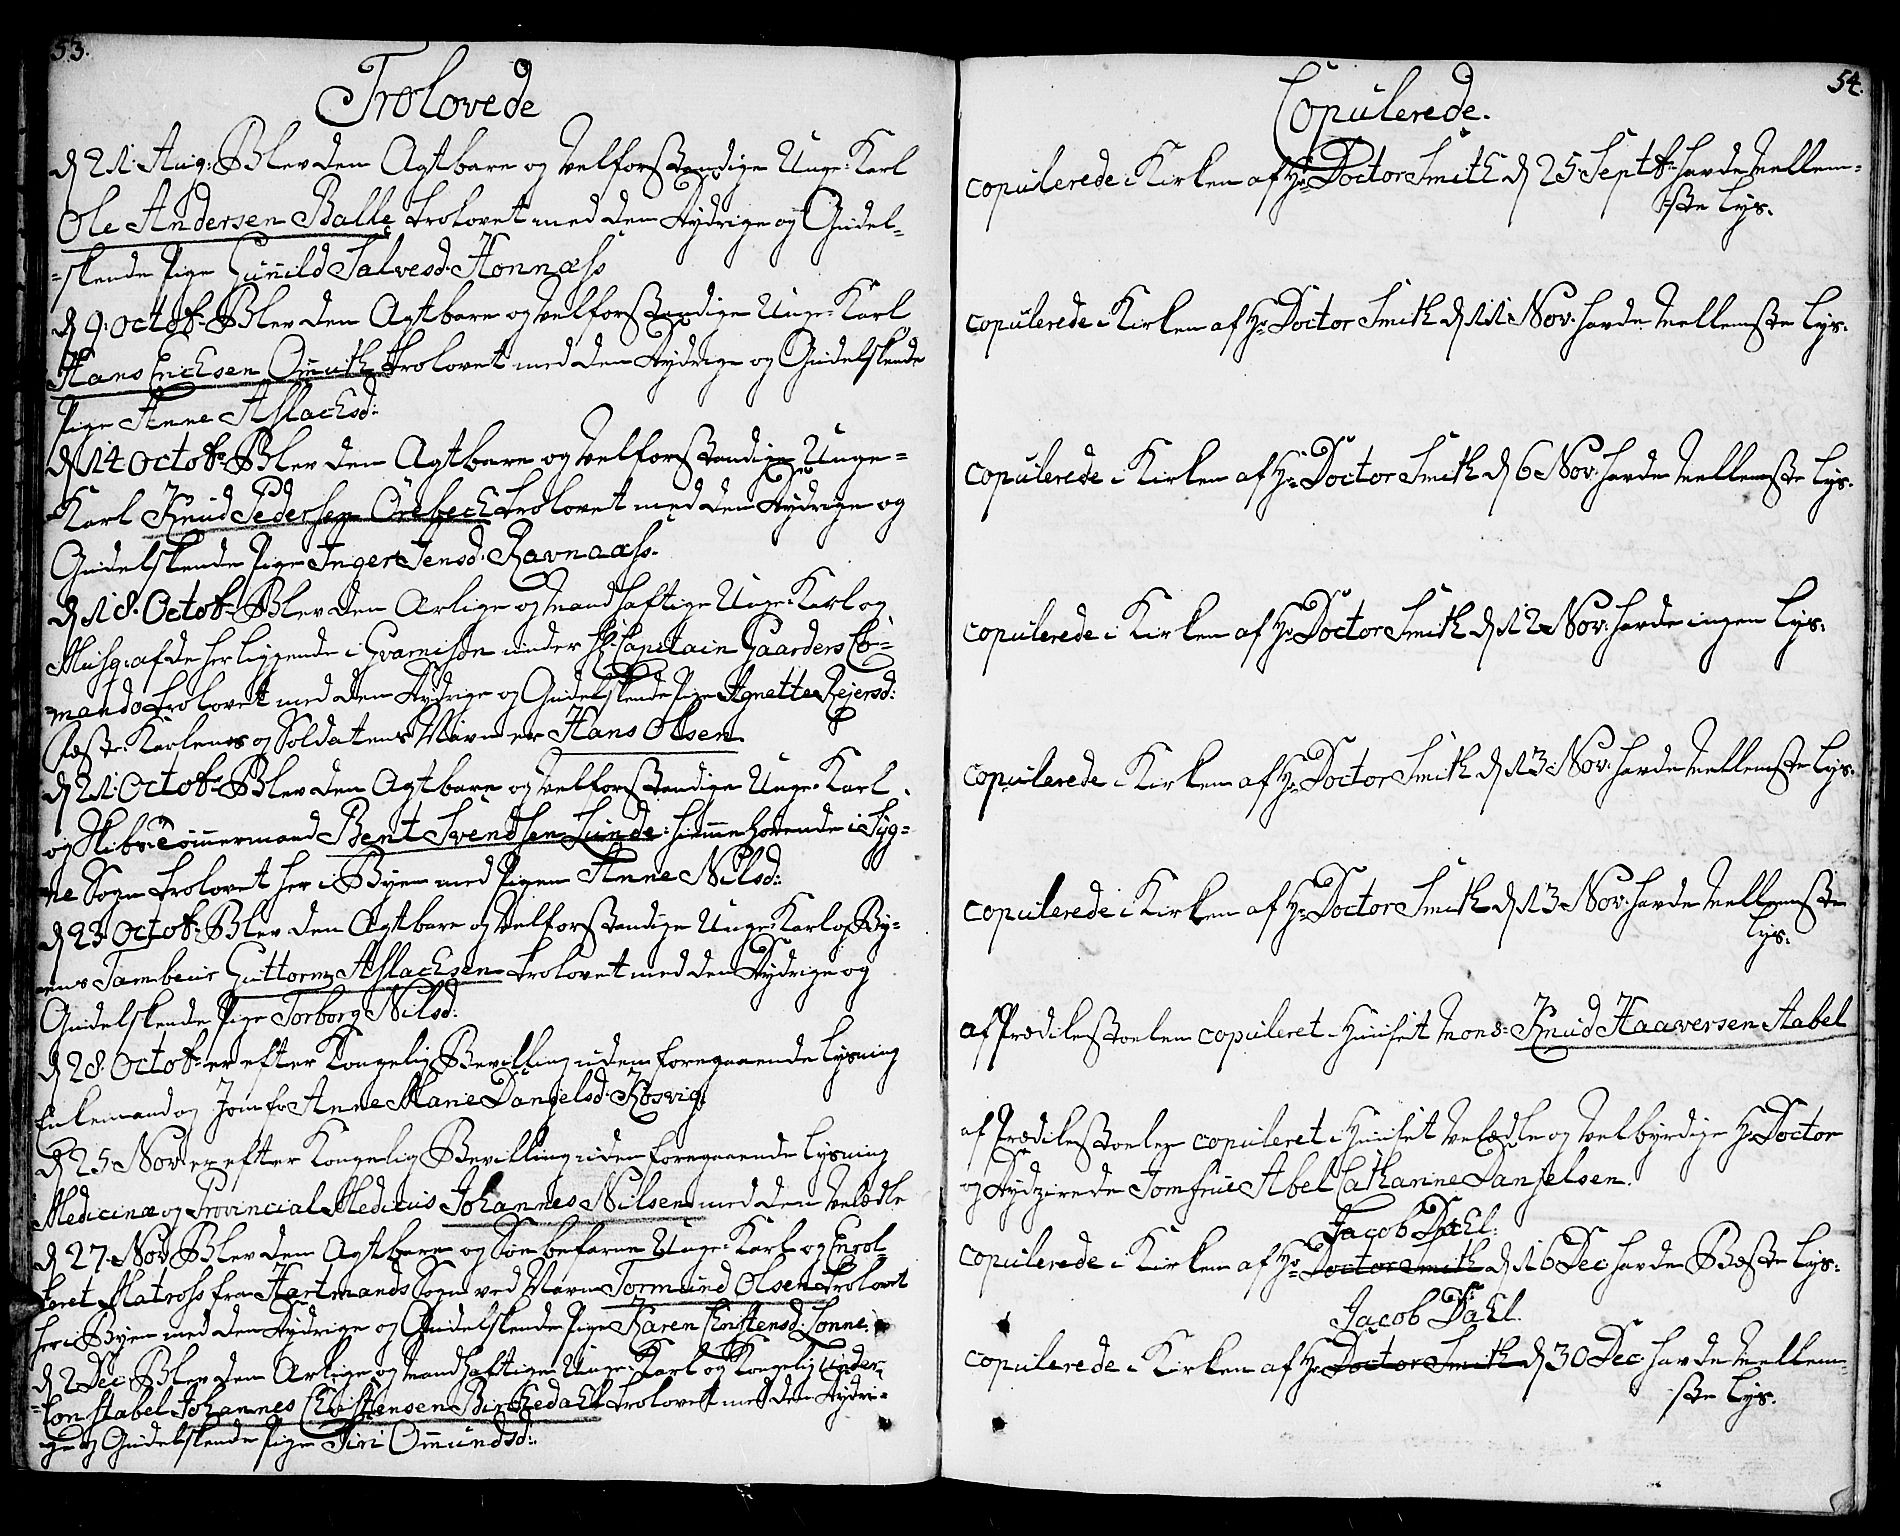 53.
Trolovede
d 21. Aug: Blev den Agtbare og Velforstandige Unge-Karl
Ole Andersen Balle trolovet med den Dydrige og Gudel-
-skende Pige Gunild Salvesd. Honnæss
d 9. Octobr: Blev den Agtbare og Velforstandige Unge-Karl
Hans Erichsen trolovet med den Dydrige og Gudelskende
Pige Anne Aslachsd:
d 14 Octobr: Blev den Agtbare og Velforstandige Unge-
Karl Knud Pedersen trolovet med den Dydrige og
Gudelskende Pige Inger Jensd. Ravnaass.
d 18. Octobr: Blev den Ærlige og Mandhaftige Unge-Karl og
Musq: af de her liggende i Gvarnison under Hr. Capitain Gaarders Co-
mando trolovet med den Dydrige og Gudelskende Pige Agnetta Rejersd:
Karlens og Soldatens Navn er Hans Olsen
d 21. Octobr: Blev den Agtbare og Velforstandige Unge-Karl
og Skibs-Tømmermand Bent Svendsen Lunde hiemmehørende i Søg-
ne Sogn trolovet her i Byen med Pigen Anne Nilsd:
d 23 Octobr: Blev den Agtbare og Velforstandige Unge-Karl og By-
ens Tambour Guttorm Aslachsen trolovet med den Dydrige og
Gudelskende Pige Torborg Nilsd:
d 28. Octobr: er efter Kongelig Bevilling uden foregaaende Lysning
Enkemand og Jomfr Anne Marie Danjelsd. Kosvig
d 25 Nov: er efter Kongelig Bevilling uden foregaaende Lysning
Medicinæ og Provincial Medicus Johannes Nilsen med den Velædle
d 27. Nov Blev den Agtbare og Søe befarne Unge-Karl og Enrol-
leret Matross fra Hartmands Sogn ved Navn Tormund Olsen trolovet
her i Byen med den Dydrige og Gudelskende Pige Karen Christensd: Lonne.
d 2 Dec: Blev den Ærlige og Mandhaftige Unge-Karl og Kongelig Under-
-Constabel Johannes Christensen Birchedahl trolovet med den Dydri-
ge og Gudelskende Pige Siri Omundsd:
54.
Copulerede.
copulerede i Kirken af Hr Doctor Smith d 25 Septbr: havde Mellem-
ste Lys.
copulerede i Kirken af Hr Doctor Smith d 11. Nov. havde Mellemste Lys.
copulerede i Kirken af Hr Doctor Smith d 6 Nov: havde Mellemste Lys.
copulerede i Kirken af Hr Doctor Smith d 12 Nov: havde ingen Lys.
copulerede i Kirken af Hr Doctor Smith d 13 Nov: havde Mellemste Lys.
copulerede i Kirken af Hr Doctor Smith d 13 Nov: havde Mellemste
Lys.
af Prædikestoelen copuleret i Huuset Mons: Knud Haaversen Stabel
af Prædikestoelen copuleret i Huuset Velædle og Velbyrdige Hr Doctor
og Dydzirede Jomfrue Abel Catharine Danjelsen.
Jacob Dahl:
copulerede i Kirken af Hr Doctor Smith d 16 Dec havde Beste Lys.
Jacob Dahl.
copulerede i Kirken af Hr Doctor Smith d 30 Dec: havde Mellem-
ste Lys.